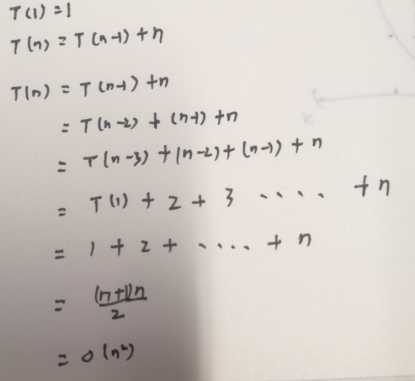 T(1) = 1
T(n) = T(n-1) + n
T(n) = T(n-1) + n
= T(n-2) + (n-1) + n
= T(n-3) + (n-2) + (n-1) + n
= T(1) + 2 + 3 ..... + n
= 1 + 2 + ..... + n
= (n+1)n / 2
= O(n²)